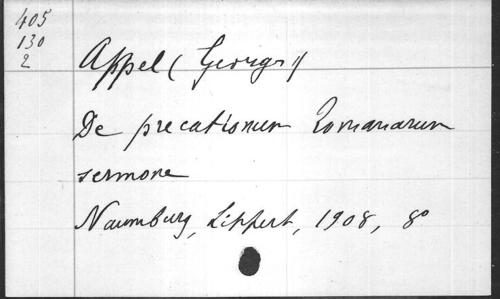 405
130
2
Appel (Georg)
De precationum Romanarum
sermone
Naumburg, Lippert, 1908, 8o